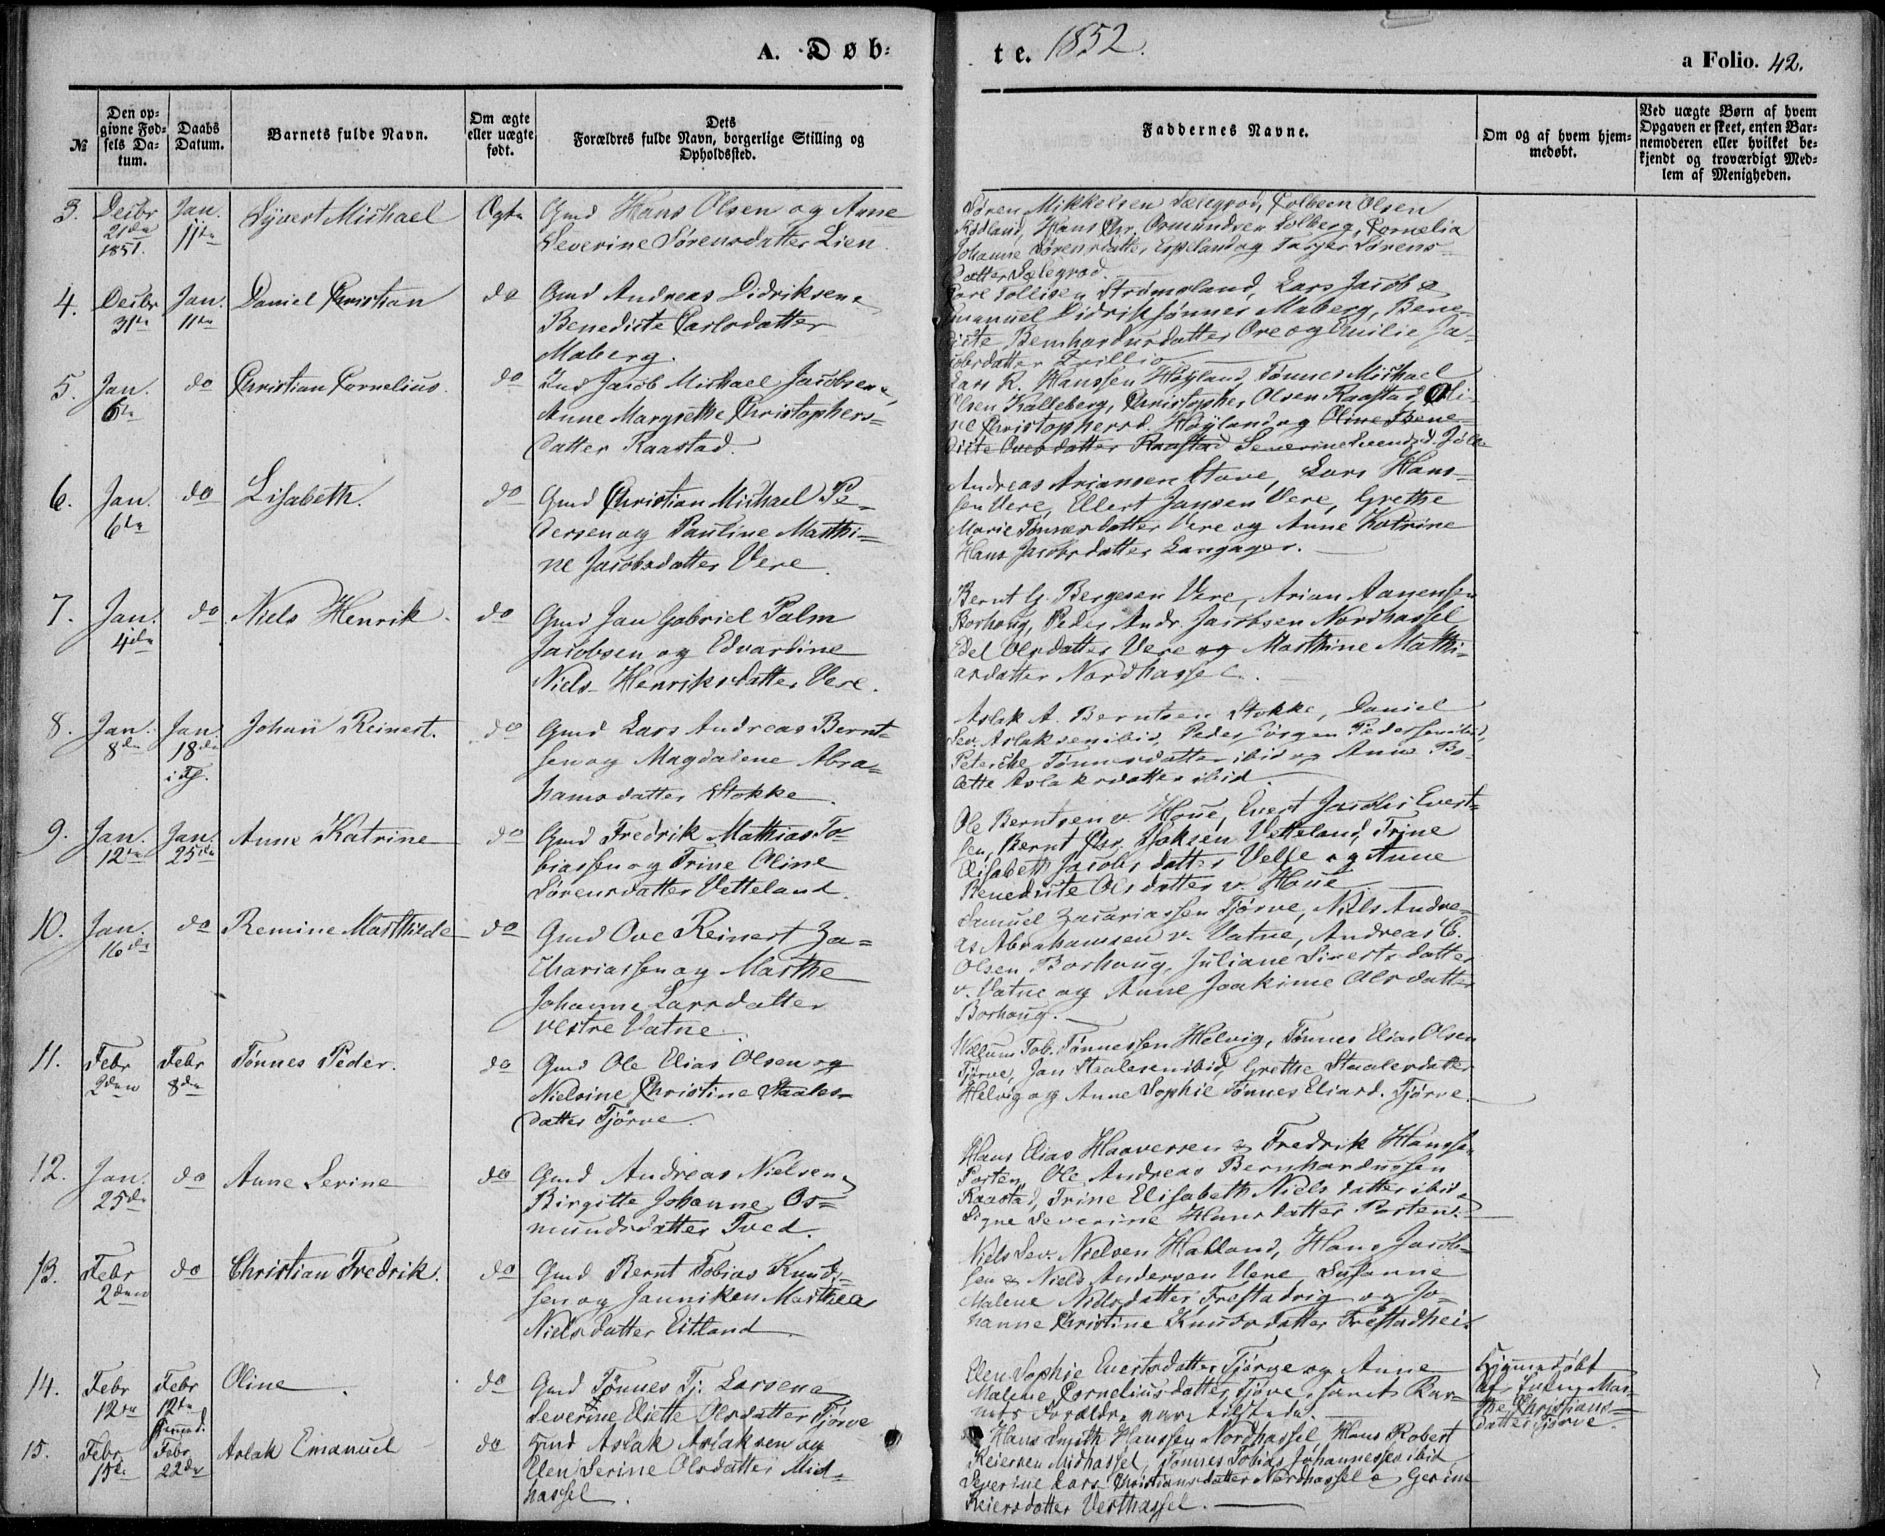 A. Døb-
te. 1852.
a Folio. 42.
№
Den op-
givne Fød-
sels Da-
tum.
Daabs
Datum.
Barnets fulde Navn.
Om ægte
eller uægte
født.
Dets
Forældres fulde Navn, borgerlige Stilling og
Opholdssted.
Faddernes Navne.
Om og af hvem hjem-
medøbt.
Ved uægte Børn af hvem
Opgaven er skeet, enten Bar-
nemoderen eller hvilket be-
kjendt og troværdigt Med-
lem af Menigheden.
3.
Decbr
21de
1851.
Jan.
11te
Syvert Michael
Ægte
Gmd Hans Olsen og Anne
Severine Sørensdatter Lien
Søren Mikkelsen Sælegrød, Colbeen Olsen
Rødland, Hans Chr. Osmundsen Solberg, Cornelia
Johanne Sørensdatter Espeland og Sørens-
datter Sælegrød.
4.
Decbr
31te
Jan.
11te
Daniel Christian
do
Gmd Andreas Didriksen &
Benedicte Carlsdatter
Maberg.
Carl Tollisen Strømsland, Lars Jacob &
Emanuel Didriksønner Maberg, Bene-
dicte Bernhardusdatter Ore og Emilie Ja-
cobsdatter
5.
Jan.
6te
do
Christian Cornelius.
do
Ind Jacob Michael Jacobsen &
Anne Margrethe Christophers-
datter Raastad.
Lars K. Hanssen Høyland, Tønnes Michael
Olsen Kalleberg, Christopher Olsen Raastad, Oli-
ne Christophersd. Høyland og Oline Bene-
dicte Ovesdatter Raastad Severine Svendsd.
6.
Jan.
6te
do
Lisabeth.
do
Gmd Christian Michael Pe-
dersen og Pauline Matthi-
ne Jacobsdatter Vere.
Andreas Ariansen Stave, Lars Hans-
sen Vere, Ellert Jansen Vere, Grethe
Marie Tønnesdatter Vere og Anne Katrine
Hans Jacobsdatter Langager.
7.
Jan.
4de
do
Niels Henrik
do
Gmd Jan Gabriel Palm
Jacobsen og Edvardine
Niels Henriksdatter Vere.
Bernt G. Bergesen Vere, Arian Aanensen
Borhoug, Peder Andr. Jacobsen Nordhassel
Edel Olsdatter Vere og Matthine Mathi-
asdatter Nordhassel.
8.
Jan.
8de
Jan.
18de
i Tj.
Johan Reinert.
do
Gmd Lars Andreas Bernt-
sen og Magdalene Abra-
hamsdatter Stokke.
Aslak A. Berntsen Stokke, Daniel
Sev. Aslaksen ibid, Peder Jørgen Pedersen ibid,
Tønnesdatter ibid og Anne Bo-
lette Aslaksdatter ibid.
9.
Jan.
12te
Jan.
25de
Anne Katrine
do
Gmd Fredrik Mathias To-
biassen og Trine Oline
Sørensdatter Vetteland.
Ole Berntsen v. Houe, Evert Jacobs Evert-
sen, Bernt Chr. Vetteland, Trine
Elisabeth Jacobsdatter Velle og Anne
Benedicte Olsdatter v. Houe
10.
Jan.
16de
do
Remine Matthilde
do
Gmd Ove Reinert Za-
chariassen og Marthe
Johanne Larsdatter
vestre Vatne.
Samuel Zacariassen Tjørve, Niels Andre-
as Abrahamsen v. Vatne, Andreas C.
Olsen Borhaug, Juliane Sivertsdatter
v. Vatne og Anne Joakime Olsdatter
Borhaug.
11.
Febr
2den
Febr
8de
Tønnes Peder.
do
Gmd Ole Elias Olsen og
Nielsine Christine Staales-
datter Tjørve.
Willum Tob. Tønnessen Helvig, Tønnes Elias Olsen
Tjørve, Jan Staalesen ibid, Grethe Staalesdatter
Helvig og Anne Sophie Tønnes Eliasd. Tjørve.
12.
Jan.
25de
do
Anne Serine
do
Gmd Andreas Nielsen &
Birgitte Johanne Os-
mundsdatter Tved.
Hans Elias Haaversen & Fredrik Hanssen
Porten, Ole Andreas Bernhardussen
Raastad, Trine Elisabeth Nielsdatter ibid &
Signe Severine Hansdatter Porten.
13.
Febr
2den
do
Christian Fredrik.
do
Gmd Bernt Tobias Knud-
sen og Janniken Marthea
Nielsdatter Eitland
Niels Sev. Nielsen Hatland, Hans Jacob-
sen & Niels Andersen Vere, Susanne
Malene Nielsdatter Frestadvig og Jo-
hanne Christine Knudsdatter Frestadhei.
14.
Febr
12te
Febr
12te
Oline
do
Gmd Tønnes Tj. Larsen &
Severine Eliette Olsdatter Tjørve
Elen Sophie Evertsdatter Tjørve og Anne
Malene Corneliusdatter Tjørve, samt Bar-
nets Forældre var tilstede.
Hjemmedøbt
af Mar-
the Christians-
datter Tjørve.
15.
Febr
15de
Febr.
22de
Aslak Emanuel
do
Gmd Aslak Aslaksen og
Elen Serine Olsdatter Mid-
hassel.
Hans Smith Hanssen Nordhassel, Hans Robert
Reiersen Midhassel, Tønnes Tobias Johannessen ibid,
Severine Lars Christiansdatter Nordhassel & Gerine
Reiersdatter Vesthassel.